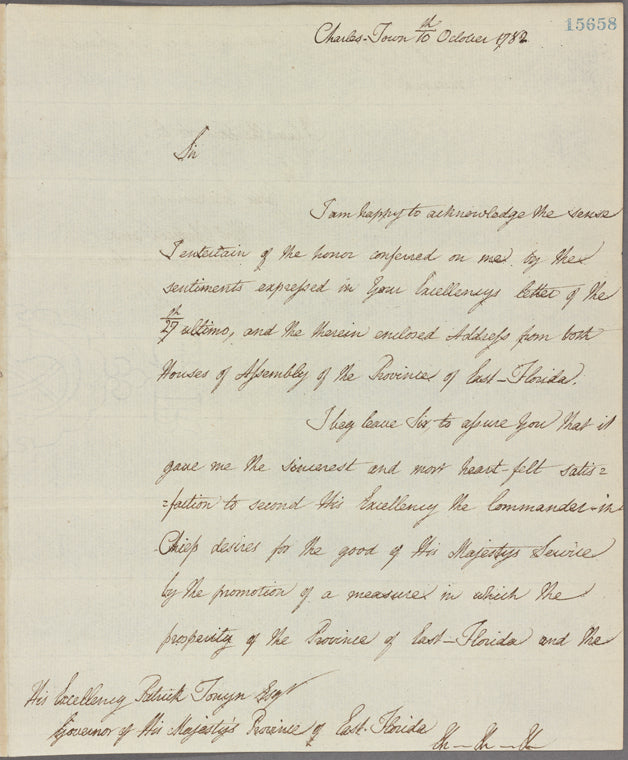 15658
Charles-Town 10th October 1782
Sir
I am happy to acknowledge the sense
I entertain of the honor conferred on me by the
sentiments expressed in Your Excellencys letter of the
27th ultimo, and the therein enclosed Address from both
Houses of Assembly of the Province of East-Florida.
I beg leave Sir to assure You that it
gave me the sincerest and most heart-felt satis=
=faction to second His Excellency the Commander-in
Chiefs desires for the good of His Majestys Service
by the promotion of a measure in which the
prosperity of the Province of East-Florida and the
His Excellency Patrick Tonyn Esqr
Governor of His Majesty's Province of East-Florida